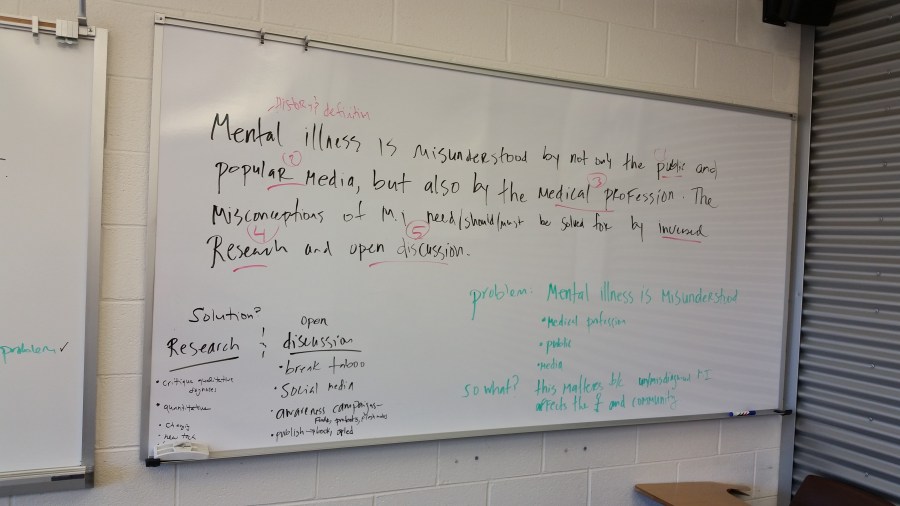 problem ✓
History? definition
Mental illness is misunderstood by not only the public and
②
popular media, but also by the medical profession. The
③
Misconceptions of M.I need/should/must be solved for by
④ ⑤
Research and open discussion.
problem: Mental illness is misunderstood
• Medical profession
• public
• media
so what? this matters b/c MI
affects the and community
Solution?
Research :
• critique qualitative
diagnoses
• quantitative
•
• new
open
discussion
• break taboo
• Social media
• awareness campaigns—
• publish → book,